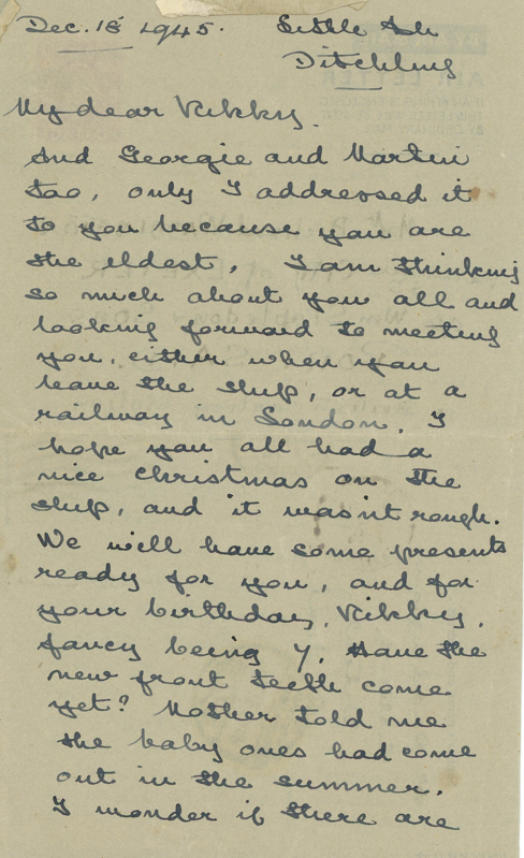 Dec. 18 1945. Little Ash
Ditchling
My dear Vikky.
And Georgie and Martin
too, only I addressed it
to you because you are
the eldest. I am thinking
so much about you all and
looking forward to meeting
you, either when you
leave the ship, or at a
railway in London. I
hope you all had a
nice christmas on the
ship, and it wasn't rough.
We will have some presents
ready for you, and for
your birthday, Vikky,
fancy being 7. Have the
new front teeth come
yet? Mother told me
the baby ones had come
out in the summer.
I wonder if there are